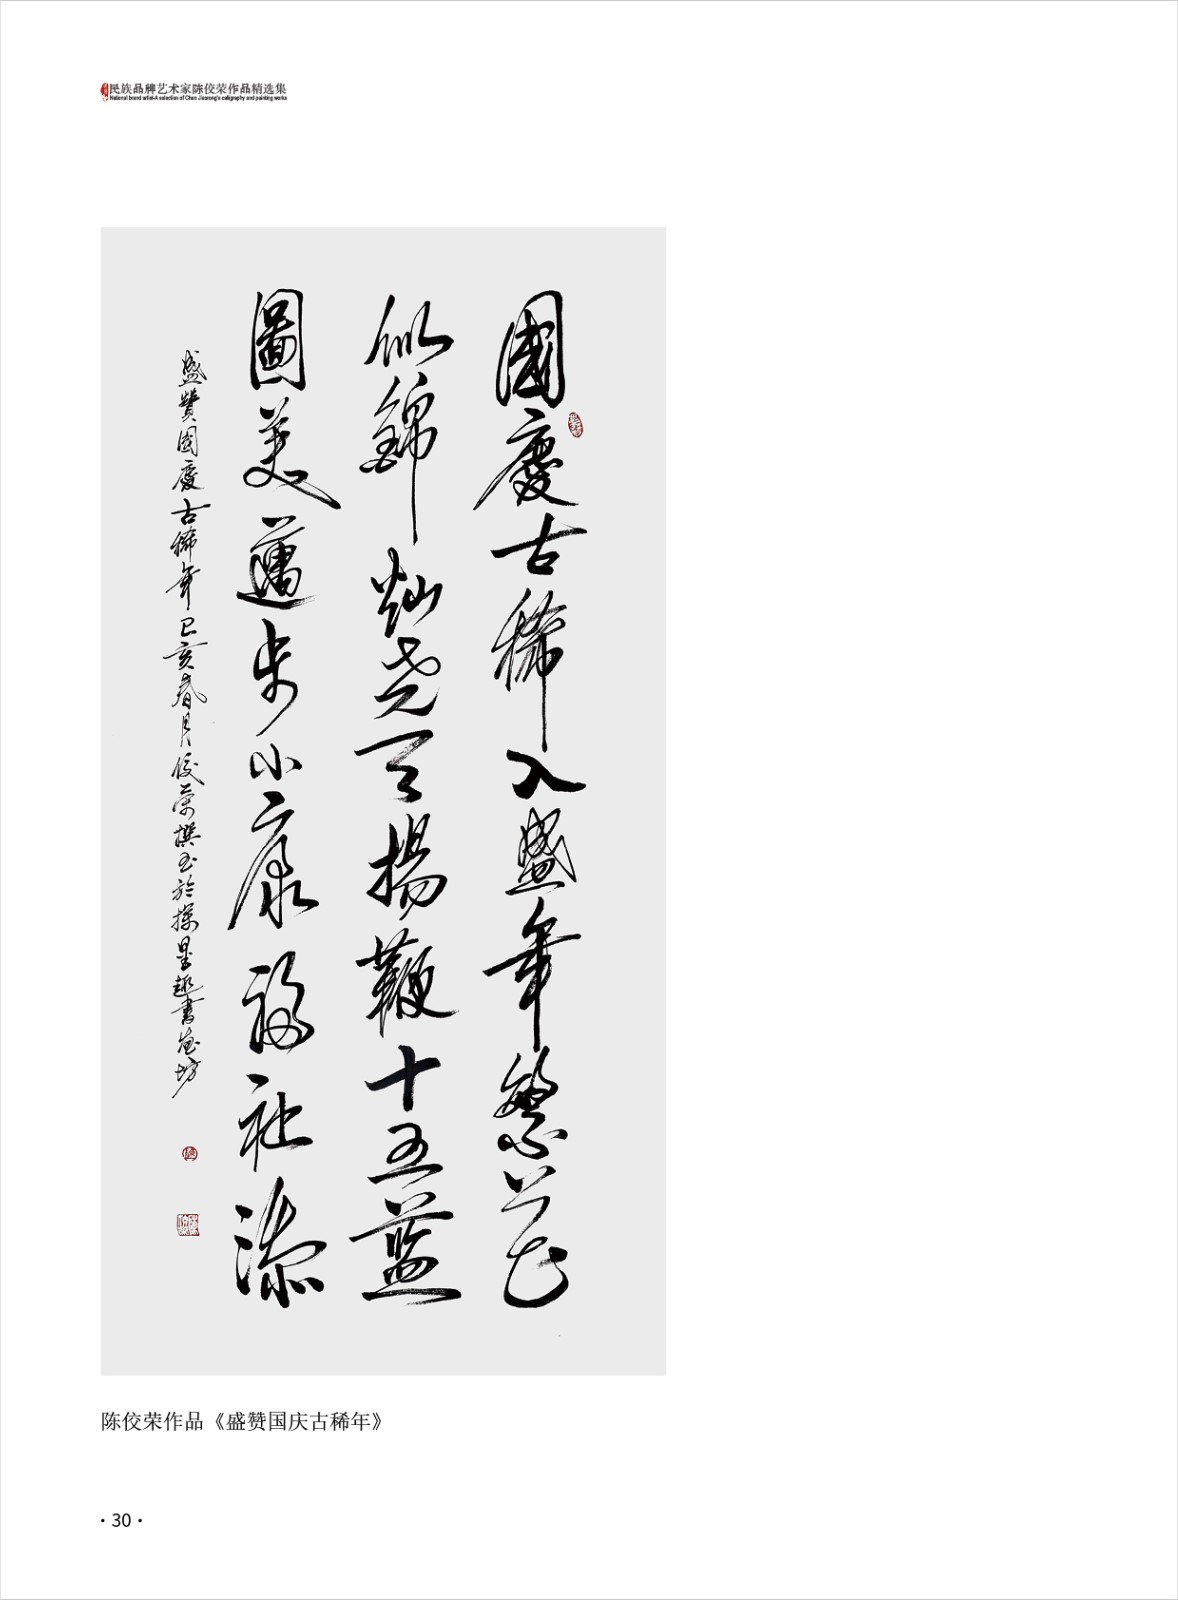 民族品牌艺术家陈佼荣作品精选集
National brand artist-A selection of Chen Jiaorong's calligraphy and painting works
國慶古稀入盛年繁花
似錦燦堯天揚鞭十五藍
圖美邁步小康福祉添
盛贊國慶古稀年己亥春月佼榮撰書於操墨趣書畫坊
陈佼荣作品《盛赞国庆古稀年》
·30·